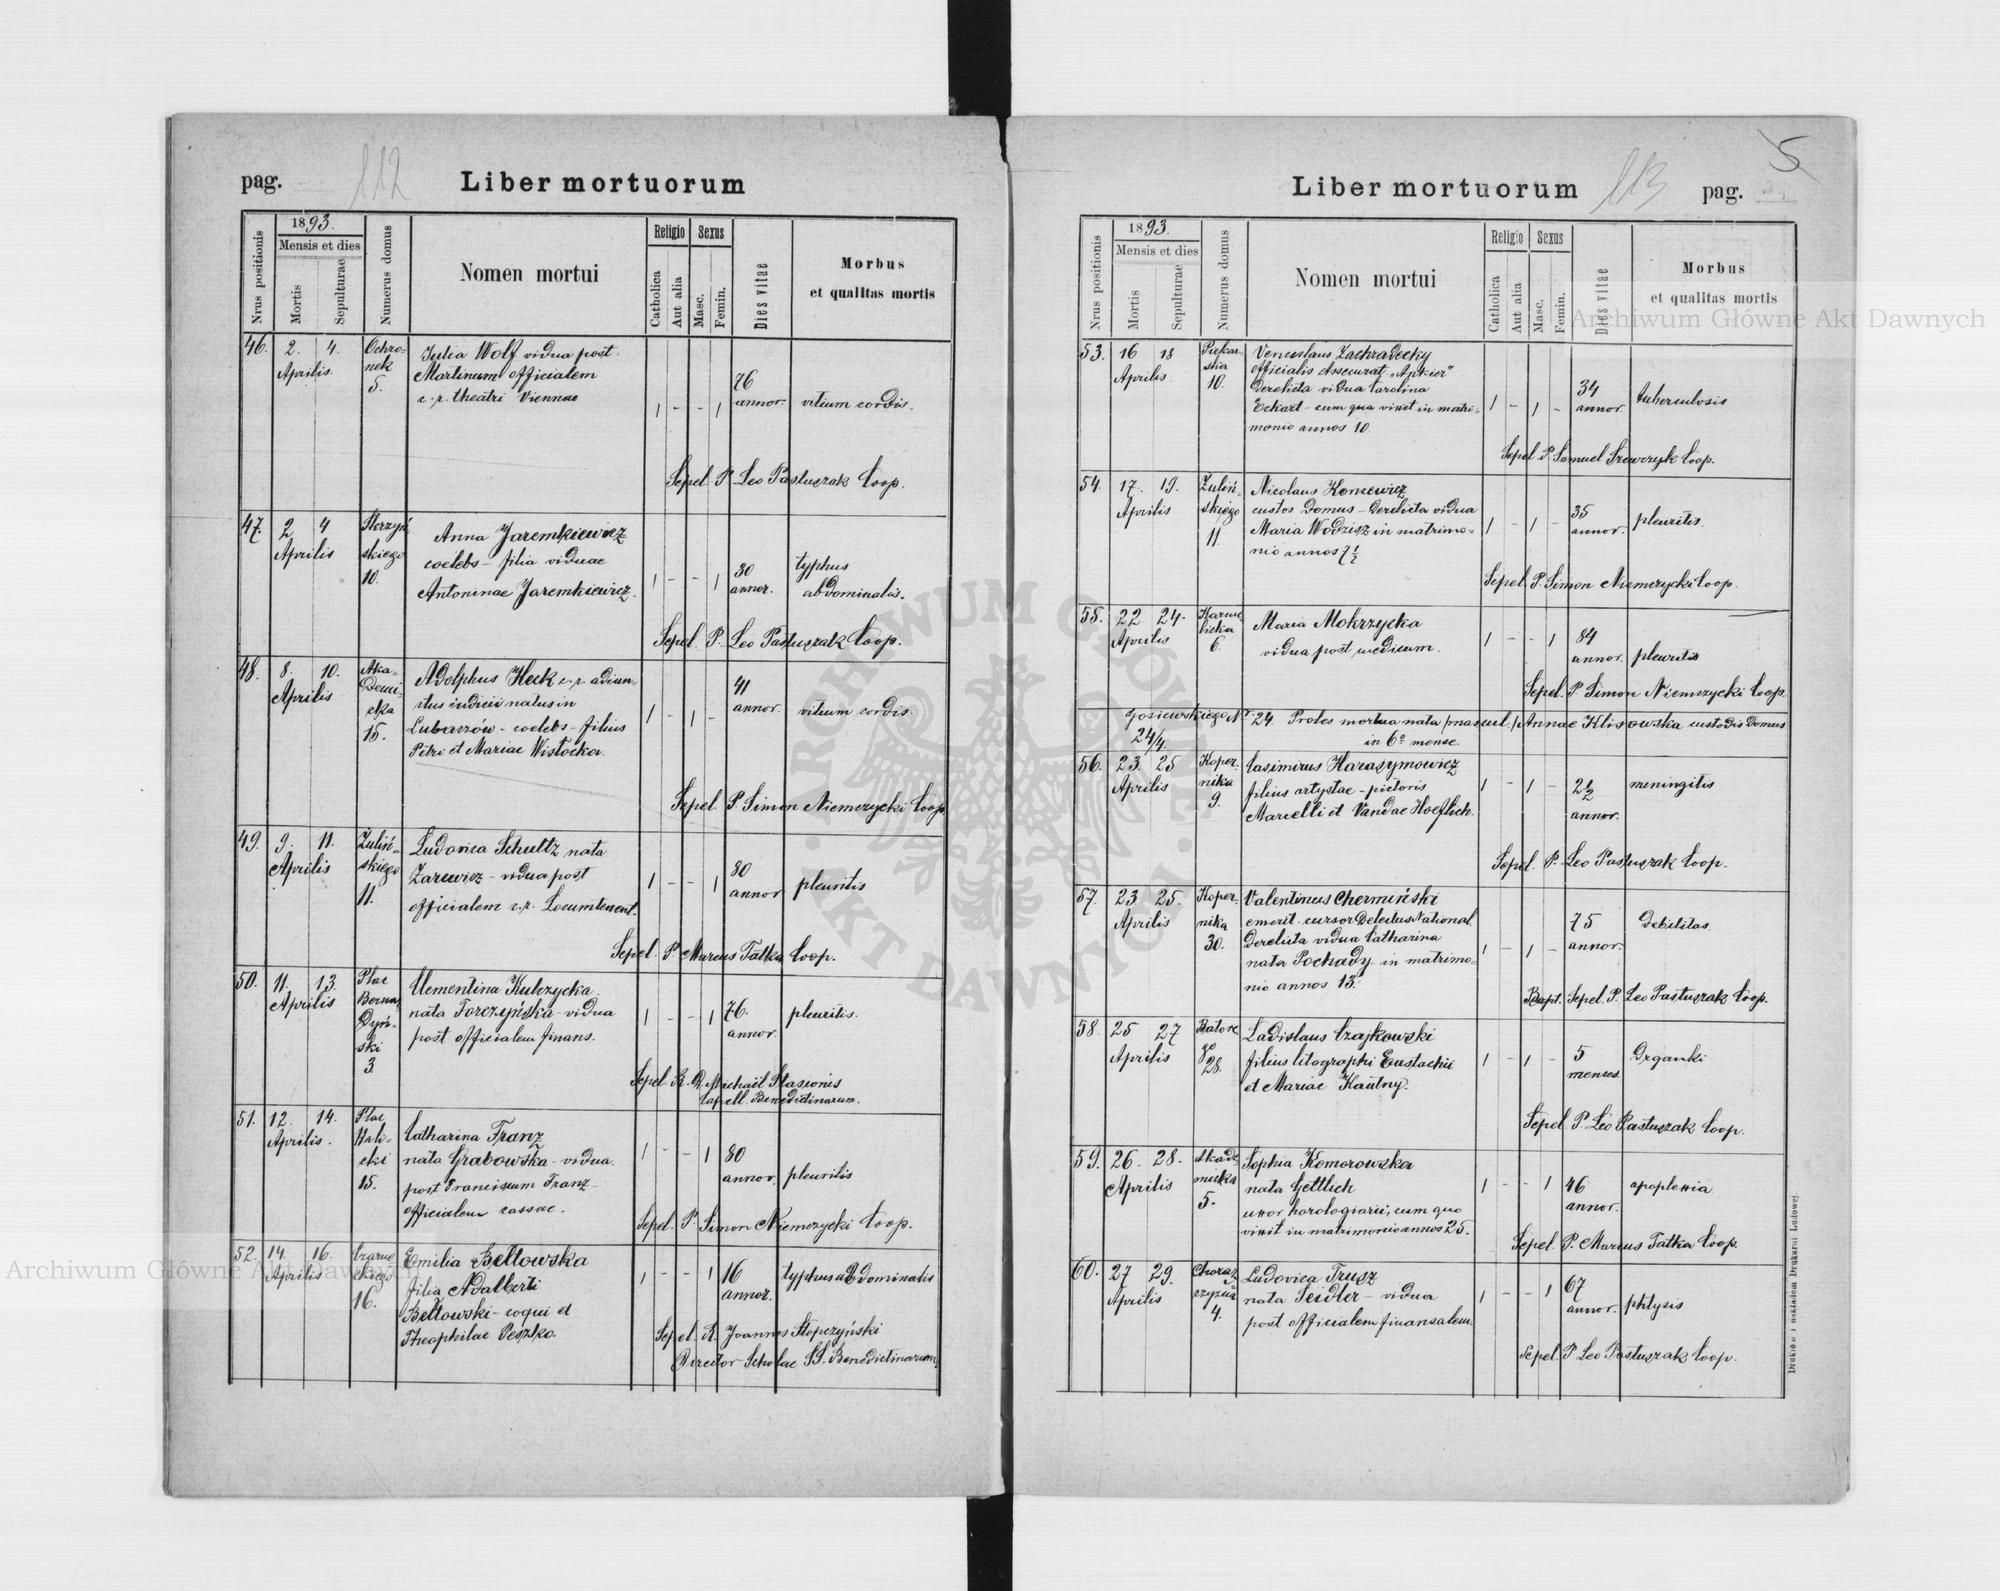 pag.
112
Liber mortuorum
Nrus positionis
1893.
Mensis et dies
Mortis
Sepulturae
Numerus domus
Nomen mortui
Religio
Catholica
Aut alia
Sexus
Masc.
Femin.
Dies vitae
Morbus
et qualitas mortis
46. 2. 4. Aprilis. Ochro-
nek
5.
Julia Wolf vidua post
Martinum officialem
c. r. theatri Viennae
1 - - 1
76
annor. vitium cordis.
Sepel. P. Leo Pastuszak Coop.
47. 2 4 Aprilis
skiego
10.
Anna Jaremkiewicz
coelebs - filia viduae
Antoninae Jaremkiewicz.
1 - - 1
30
annor.
typhus
abdominalis.
Sepel. P. Leo Pastuszak Coop.
48. 8. 10. Aprilis
Aka-
demi-
cka
15.
Adolphus Heck c. r. adiun-
ctus iudicii natus in
Lubaczów - coelebs - filius
Petri et Mariae Wisłocka.
1 - 1 -
41
annor. vitium cordis.
Sepel. P. Simon Niemczycki Coop.
49. 9. 11. Aprilis
Zuliń-
skiego
11.
Ludovica Schultz nata
Zarewicz - vidua post
officialem c. r. Locumtenent.
1 - - 1
80
annor pleuritis
Sepel. P. Marcus Fatka Coop.
50. 11. 13. Aprilis
Plac
Bernar-
dyń-
ski
3.
Clementina Kulczycka
nata Torczyńska - vidua
post officialem finans.
1 - - 1
76.
annor. pleuritis.
Sepel. R. D. Michaël Stasionis
Capell. Benedictinarum.
51. 12. 14. Aprilis.
Plac
Hali-
cki
15.
Catharina Franz
nata Grabowska - vidua
post Franciscum Franz -
officialem cassae.
1 - - 1
80
annor. pleuritis
Sepel. P. Simon Niemczycki Coop.
52. 14. 16. Aprilis
Czarne-
ckiego
16.
Emilia Bełtowska
filia Adalberti
Bełtowski - coqui et
Theophilae Peszko.
1 - - 1
16
annor. typhus abdominalis
Sepel. R. Joannes Słopczyński
Director Scholae SS. Benedictinarum
Liber mortuorum
113
pag.
5
Nrus positionis
1893.
Mensis et dies
Mortis
Sepulturae
Numerus domus
Nomen mortui
Religio
Catholica
Aut alia
Sexus
Masc.
Femin.
Dies vitae
Morbus
et qualitas mortis
53. 16 18 Aprilis
Piekar-
ska
10.
Venceslaus Zachradecky
officialis Assecurat.
derelicta vidua Carolina
Eckart - cum qua vixit in matri-
monio annos 10.
1 - 1 -
34
annor. tuberculosis
Sepel. P. Samuel Szewczyk Coop.
54. 17. 19. Aprilis
Zuliń-
skiego
11
Nicolaus Koncewicz
custos domus - derelicta vidua
Maria Wodzisz in matrimo-
nio annos 7 1/2
1 - 1 -
35
annor. pleuritis.
Sepel. P. Simon Niemczycki Coop.
55. 22 24. Aprilis
Karme-
licka
6.
Maria Mokrzycka
vidua post medicum.
1 - - 1
84
annor. pleuritis
Sepel. P. Simon Niemczycki Coop.
Gosiewskiego Nr. 24 Proles mortua nata /mascul./ Annae Klisowska custodis domus
24/4. in 6º mense.
56. 23. 25 Aprilis
Koper-
nika
9.
Casimirus Harasymowicz
filius artystae - pictoris
Marcelli et Vandae Hoeflich.
1 - 1 -
2 1/2
annor.
meningitis
Sepel. P. Leo Pastuszak Coop.
57. 23 25. Aprilis
Koper-
nika
30.
Valentinus Chermiński
emerit. cursor Delectus National.
derelicta vidua Catharina
nata Pochady in matrimo-
nio annos 13.
1 - 1 -
75
annor.
debilitas.
Bapt. Sepel. P. Leo Pastuszak Coop.
58. 25 27 Aprilis
Batore-
go
28.
Ladislaus Czajkowski
filius litographi Eustachii
et Mariae Kautny.
1 - 1 -
5
menses
Drganki
Sepel. P. Leo Pastuszak Coop.
59. 26. 28. Aprilis
Akade-
micka
5.
Sophia Komorowska
nata Gettlich
uxor horologiarii, cum quo
vixit in matrimonio annos 25.
1 - - 1
46
annor.
apoplexia
Sepel. P. Marcus Fatka Coop.
60. 27 29. Aprilis
Chorąż-
czyzna
4.
Ludovica Trusz
nata Seidler - vidua
post officialem finansalem.
1 - - 1
67
annor. phtysis
Sepel. P. Leo Pastuszak Coop.
Drukiem i nakładem Drukarni Ludowej.
Archiwum Główne Akt Dawnych
Archiwum Główne Akt Dawnych
ARCHIWUM GŁÓWNE AKT DAWNYCH